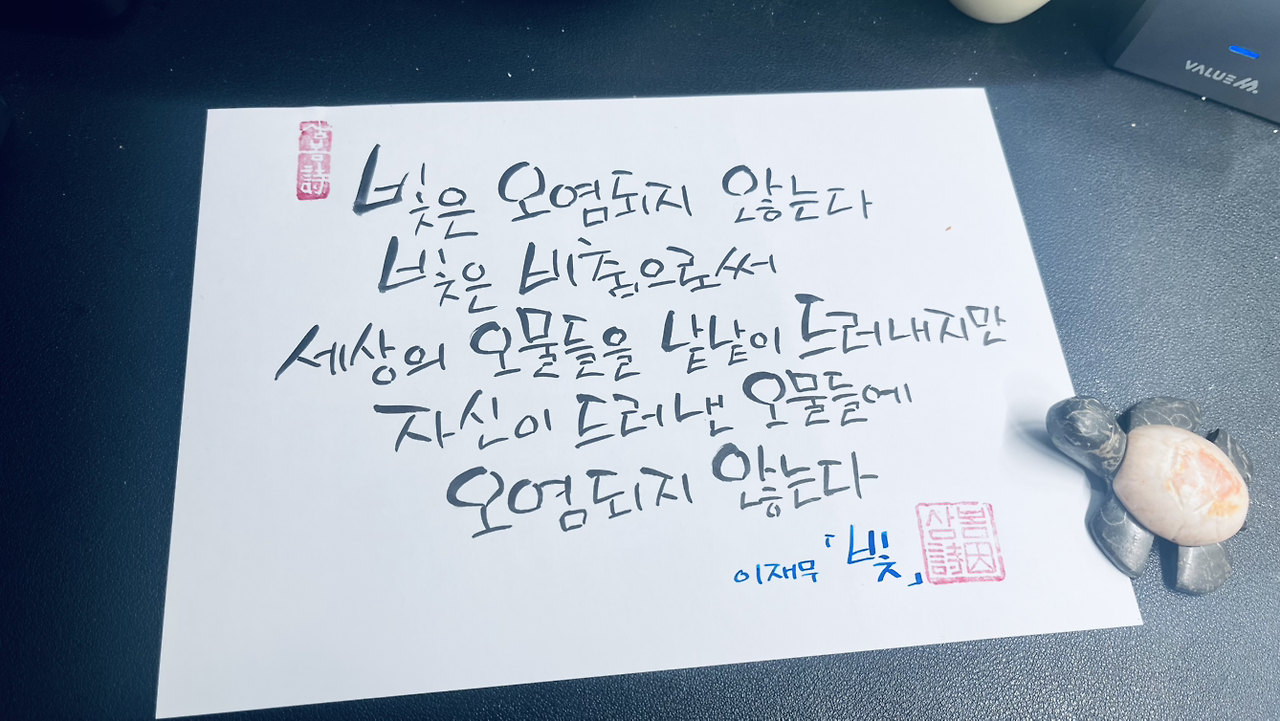 빛은 오염되지 않는다
빛은 비춤으로써
세상의 오물들을 낱낱이 드러내지만
자신이 드러낸 오물들에
오염되지 않는다
이재무 「빛」
VALUE